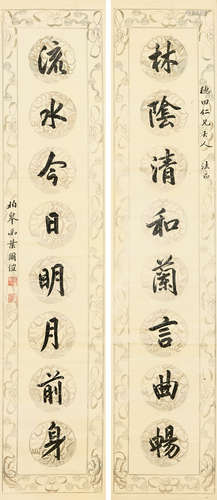 德田仁兄大人 法正
林陰清和蘭言曲暢
流水今日明月前身
柏皋弟葉爾愷